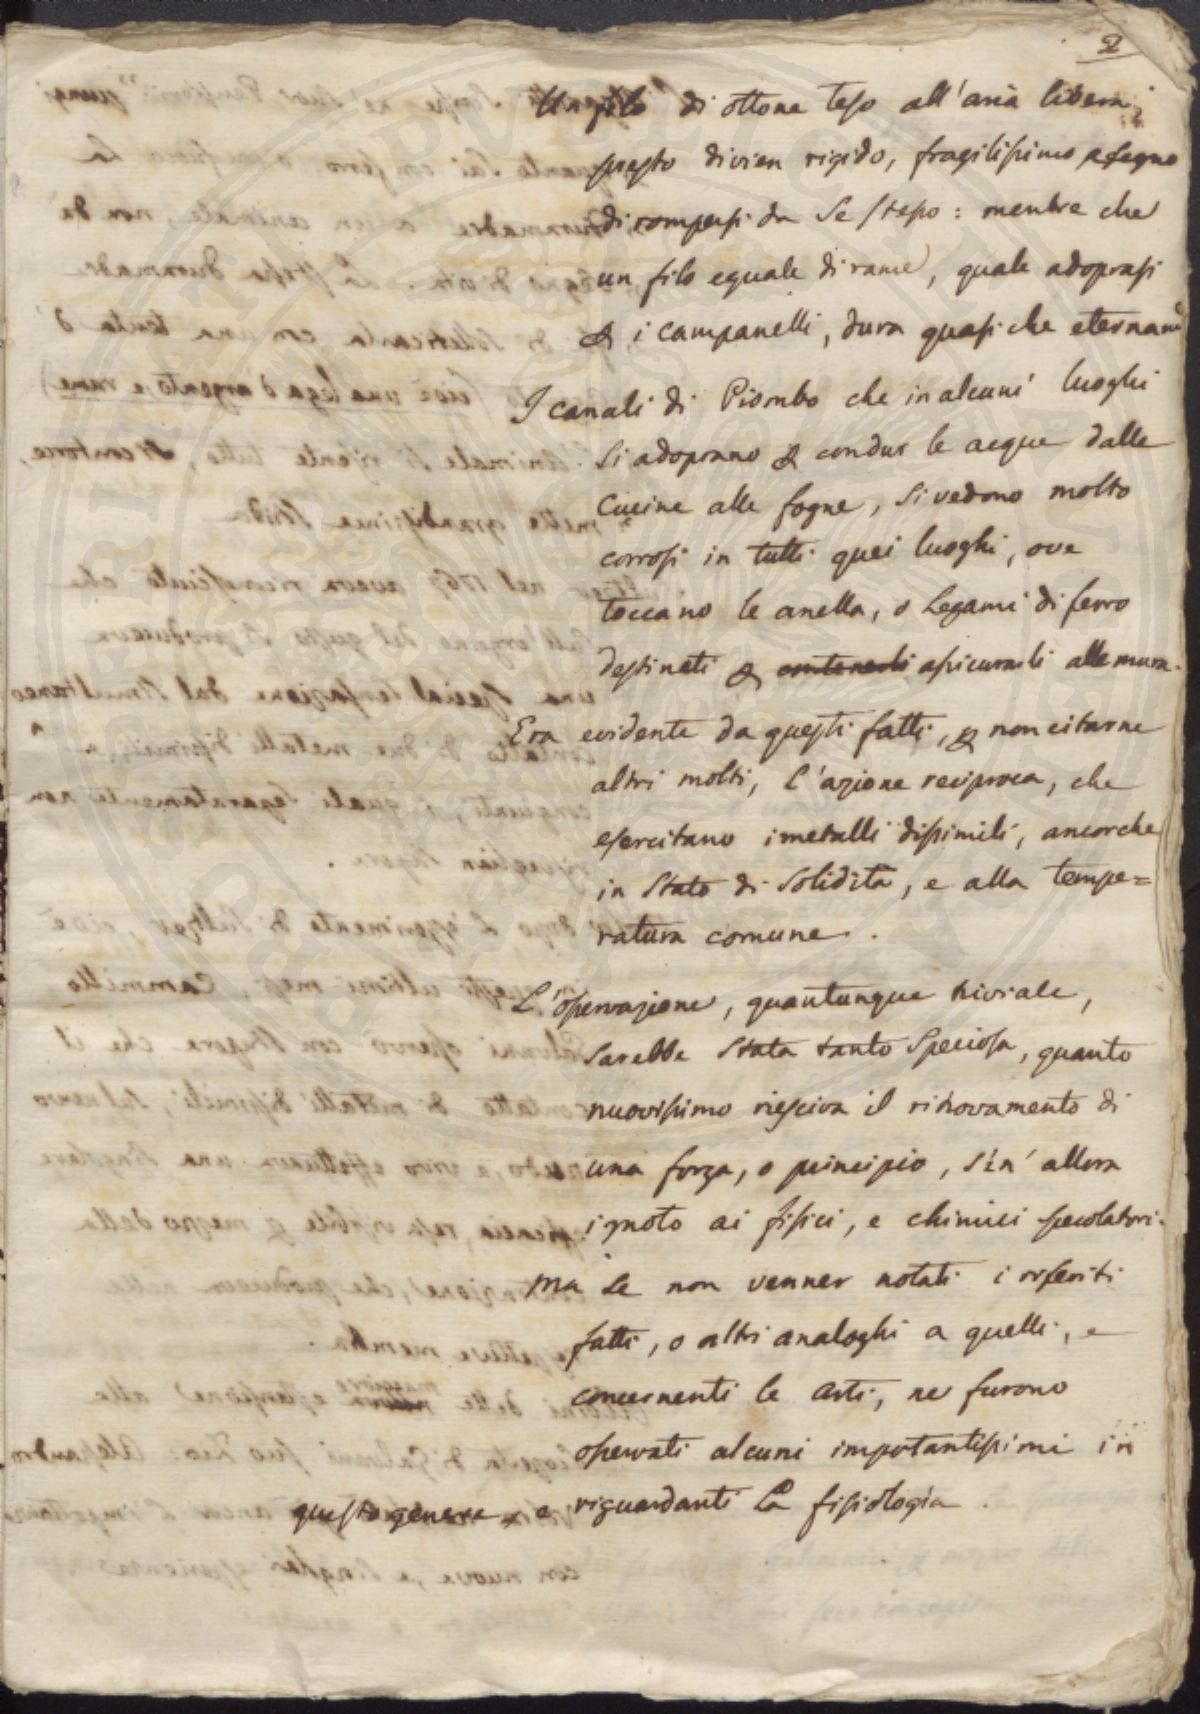 2
Un filo di ottone teso all'aria libera,
presto divien rigido, fragilissimo a segno
di rompersi da se stesso: mentre che
un filo eguale di rame, quale adoprasi
per i campanelli, dura quasi che eternam
I canali di Piombo che in alcuni luoghi
si adoprano per condur le acque dalle
Cucine alle fogne, si vedono molto
corrosi in tutti quei luoghi, ove
toccano le anella, o Legami di ferro
destinati per contenerli assicurarli alle mura.
Era evidente da questi fatti, per non citarne
altri molti, l'azione reciproca, che
esercitano i metalli dissimili, ancorche
in Stato di Solidità, e alla tempe=
ratura comune.
L'osservazione, quantunque triviale,
sarebbe Stata tanto Speciosa, quanto
nuovissimo riesciva il ritrovamento di
una forza, o principio, sin' allora
ignoto ai fisici, e chimici specolatori.
Ma se non venner notati i riferiti
fatti, o altri analoghi a quelli, e
concernenti le arti, ne furono
osservati alcuni importantissimi in
questo genere, e riguardanti La fisiologia.